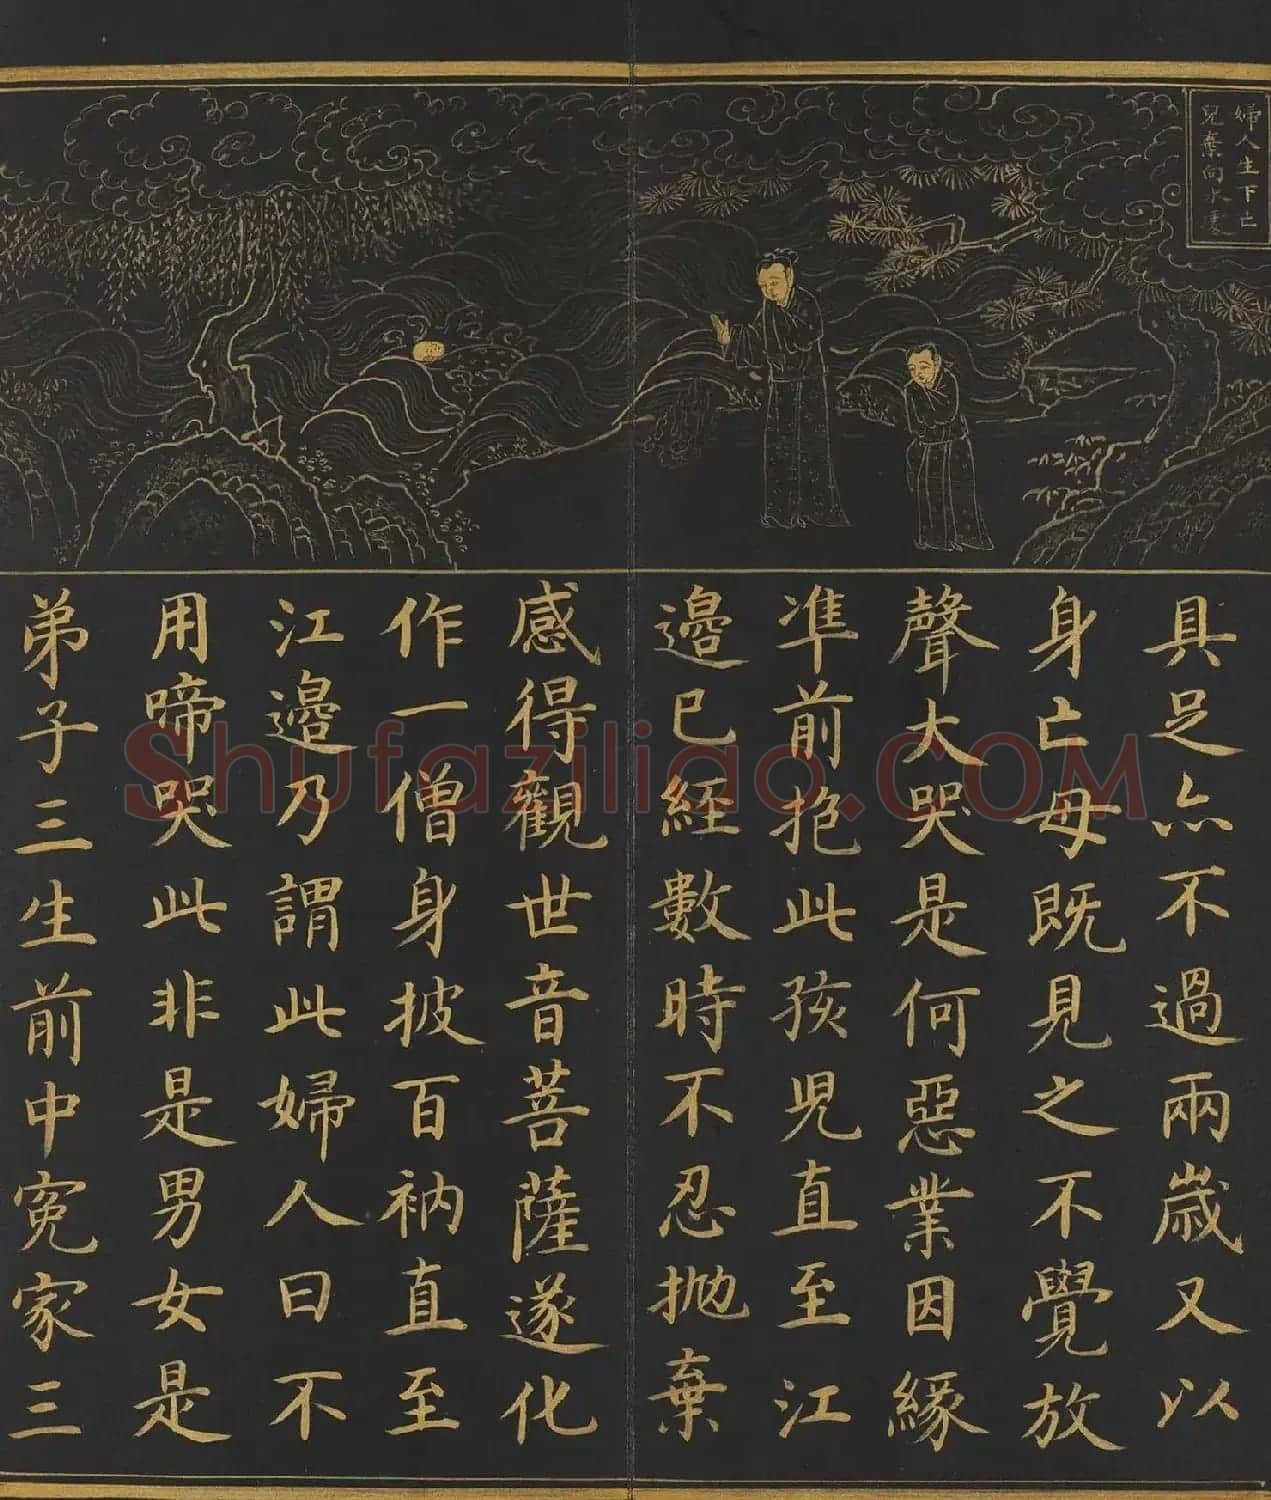 婦人生下亡
兒棄向水
具足亦不過兩歲又以
身亡母既見之不覺放
聲大哭是何惡業因緣
準前抱此孩兒直至江
邊已經數時不忍拋棄
感得觀世音菩薩遂化
作一僧身披百衲直至
江邊乃謂此婦人曰不
用啼哭此非是男女是
弟子三生前中冤家三
Shufaziliao.COM